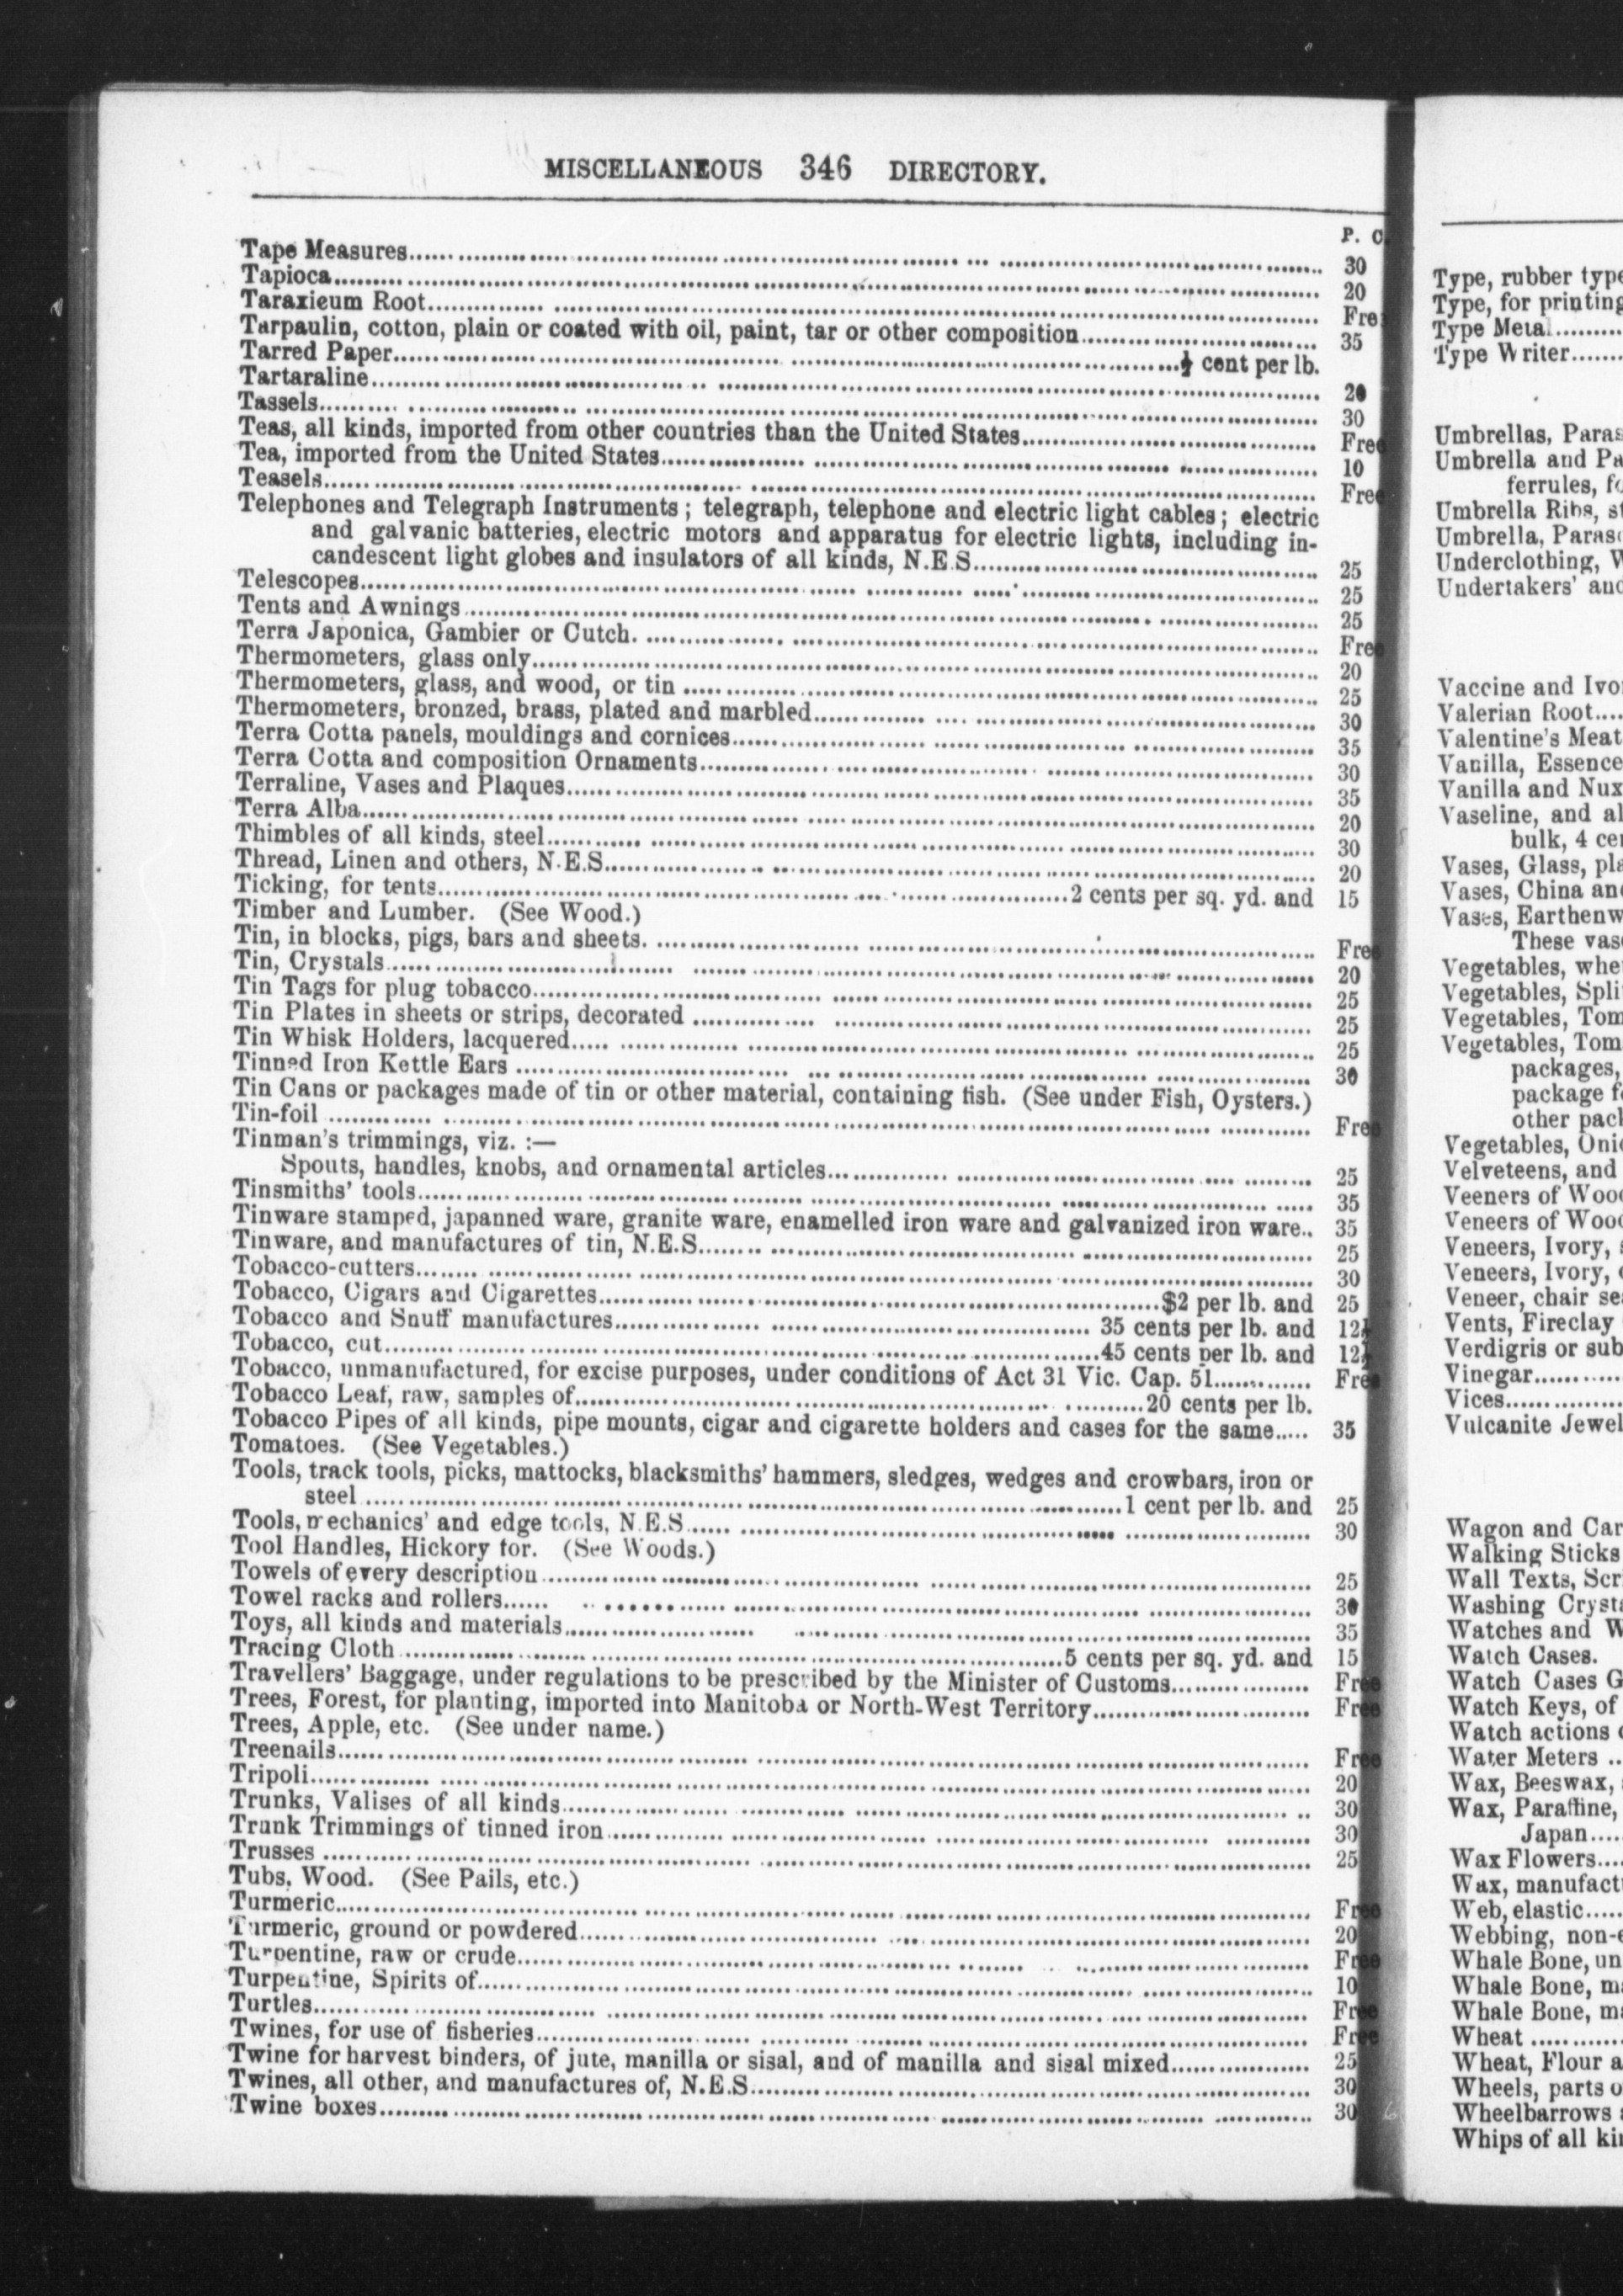 MISCELLANEOUS 346 DIRECTORY.
P. C.
Tape Measures 30
Tapioca 20
Taraxieum Root Free
Tarpaulin, cotton, plain or coated with oil, paint, tar or other composition 35
Tarred Paper ½ cent per lb.
Tartaraline 20
Tassels 30
Teas, all kinds, imported from other countries than the United States Free
Tea, imported from the United States 10
Teasels Free
Telephones and Telegraph Instruments; telegraph, telephone and electric light cables; electric
and galvanic batteries, electric motors and apparatus for electric lights, including in-
candescent light globes and insulators of all kinds, N.E.S. 25
Telescopes 25
Tents and Awnings 25
Terra Japonica, Gambier or Cutch. Free
Thermometers, glass only 20
Thermometers, glass, and wood, or tin 25
Thermometers, bronzed, brass, plated and marbled 30
Terra Cotta panels, mouldings and cornices 35
Terra Cotta and composition Ornaments 30
Terraline, Vases and Plaques 35
Terra Alba 20
Thimbles of all kinds, steel 30
Thread, Linen and others, N.E.S. 20
Ticking, for tents 2 cents per sq. yd. and 15
Timber and Lumber. (See Wood.)
Tin, in blocks, pigs, bars and sheets. Free
Tin, Crystals 20
Tin Tags for plug tobacco 25
Tin Plates in sheets or strips, decorated 25
Tin Whisk Holders, lacquered 25
Tinned Iron Kettle Ears 30
Tin Cans or packages made of tin or other material, containing fish. (See under Fish, Oysters.)
Tin-foil Free
Tinman's trimmings, viz. :—
Spouts, handles, knobs, and ornamental articles 25
Tinsmiths' tools 35
Tinware stamped, japanned ware, granite ware, enamelled iron ware and galvanized iron ware.. 35
Tinware, and manufactures of tin, N.E.S. 25
Tobacco-cutters 30
Tobacco, Cigars and Cigarettes $2 per lb. and 25
Tobacco and Snuff manufactures 35 cents per lb. and 12½
Tobacco, cut 45 cents per lb. and 12½
Tobacco, unmanufactured, for excise purposes, under conditions of Act 31 Vic. Cap. 51 Free
Tobacco Leaf, raw, samples of 20 cents per lb.
Tobacco Pipes of all kinds, pipe mounts, cigar and cigarette holders and cases for the same 35
Tomatoes. (See Vegetables.)
Tools, track tools, picks, mattocks, blacksmiths' hammers, sledges, wedges and crowbars, iron or
steel 1 cent per lb. and 25
Tools, mechanics' and edge tools, N.E.S. 30
Tool Handles, Hickory for. (See Woods.)
Towels of every description 25
Towel racks and rollers 30
Toys, all kinds and materials 35
Tracing Cloth 5 cents per sq. yd. and 15
Travellers' Baggage, under regulations to be prescribed by the Minister of Customs Free
Trees, Forest, for planting, imported into Manitoba or North-West Territory Free
Trees, Apple, etc. (See under name.)
Treenails Free
Tripoli 20
Trunks, Valises of all kinds 30
Trunk Trimmings of tinned iron 30
Trusses 25
Tubs, Wood. (See Pails, etc.)
Turmeric Free
Turmeric, ground or powdered 20
Turpentine, raw or crude Free
Turpentine, Spirits of 10
Turtles Free
Twines, for use of fisheries Free
Twine for harvest binders, of jute, manilla or sisal, and of manilla and sisal mixed 25
Twines, all other, and manufactures of, N.E.S. 30
Twine boxes 30
Type, rubber type
Type, for printing
Type Metal
Type Writer
Umbrellas,
Umbrella and
ferrules,
Umbrella Ribs,
Umbrella,
Underclothing,
Undertakers'
Vaccine and
Valerian Root
Valentine's Meat
Vanilla, Essence
Vanilla and Nux
Vaseline, and
bulk, 4
Vases, Glass,
Vases, China
Vases,
These
Vegetables,
Vegetables,
Vegetables,
Vegetables,
packages,
package
other
Vegetables,
Velveteens, and
Veeners of
Veneers of
Veneers, Ivory,
Veneers, Ivory,
Veneer, chair
Vents, Fireclay
Verdigris or
Vinegar
Vices
Vulcanite
Wagon and
Walking Sticks
Wall Texts,
Washing
Watches and
Watch Cases.
Watch Cases
Watch Keys, of
Watch actions
Water Meters
Wax, Beeswax,
Wax, Paraffine,
Japan
Wax Flowers
Wax,
Web, elastic
Webbing,
Whale Bone,
Whale Bone,
Whale Bone,
Wheat
Wheat, Flour
Wheels, parts
Wheelbarrows
Whips of all